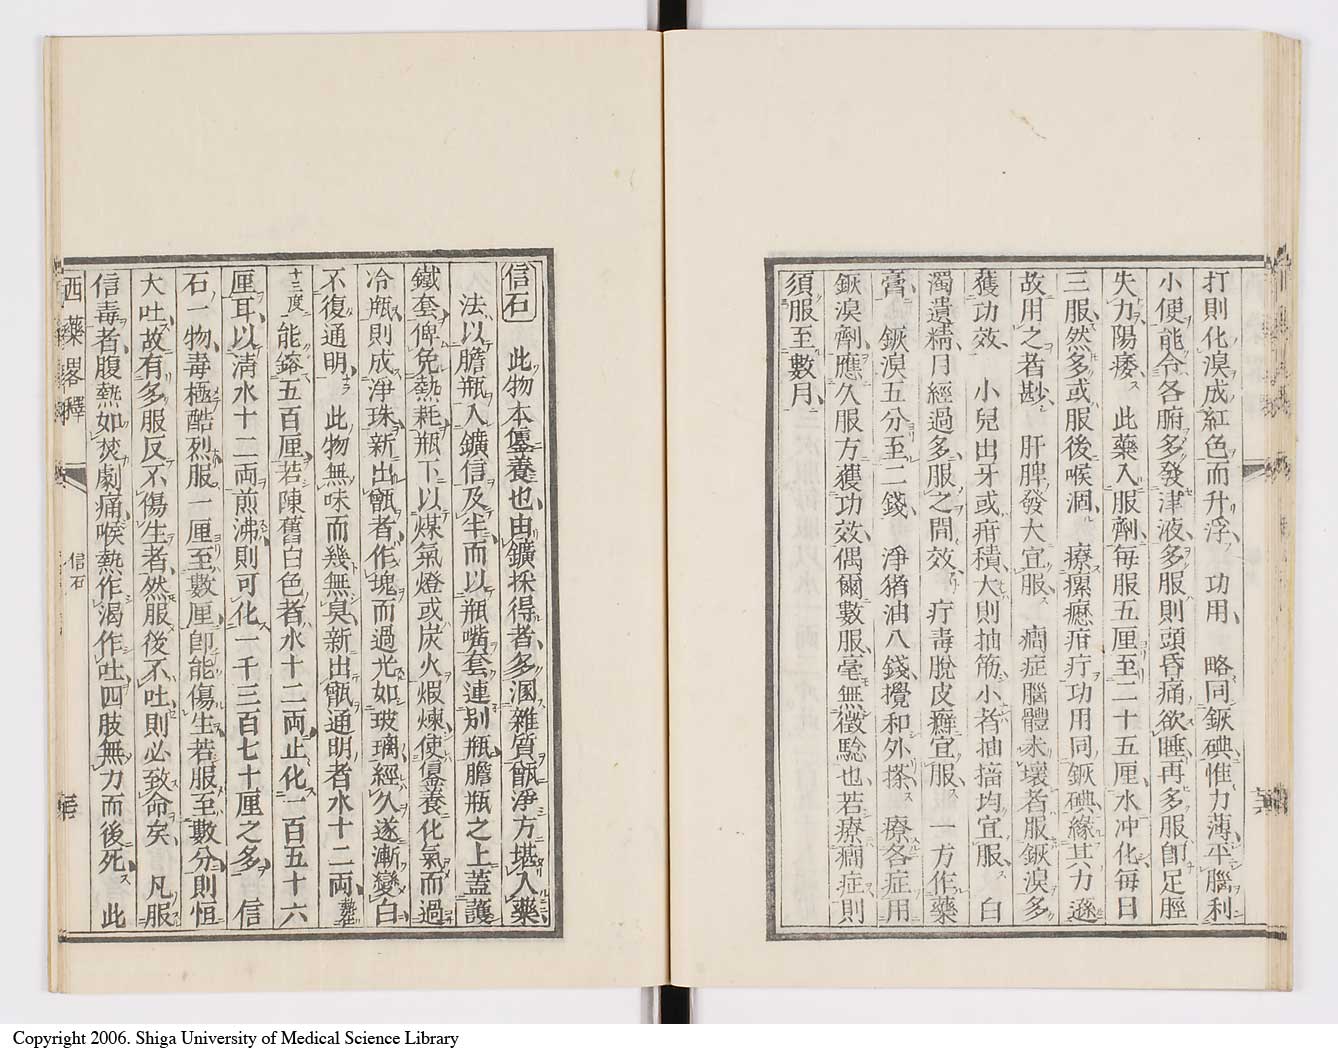 打則化溴成紅色而升浮、功用、略同鉙碘、惟力薄、平腦利
小便能令各腑多發津液、多服則頭昏痛欲睡再多服卽足脛
失力陽痿、此藥入服劑每服五厘至二十五厘水冲化每日
三服然多或服後喉涸、療瘰癧疳疔功用同鉙碘緣其力遜
故用之者尠、肝脾發大宜服、癎症腦體未壞者服鉙溴多
獲功效、小兒出牙或疳積大則抽筋小者抽搐均宜服、白
濁遺精月經過多服之間效、疔毒脫皮癬宜服、一方作藥
膏、鉙溴五分至二錢、淨猪油八錢攪和外搽、療各症用
鉙溴劑應久服方獲功效偶爾數服毫無徵驗也若療癎症則
須服至數月、
信石 此物本養也由鑛採得者多溷雜質甑淨方堪入藥
法以膽瓶入鑛信及半而以瓶嘴套連別瓶膽瓶之上蓋護
鐵套俾免熱耗瓶下以煤氣燈或炭火煆煉使養化氣而過
冷瓶則成淨珠新出甑者作塊而過光如玻璃經久遂漸變白
不復通明、此物無味而幾無臭新出甑通明者水十二兩熱至
十三度能鎔五百厘若陳舊白色者水十二兩止化一百五十六
厘耳以淸水十二兩煎沸則可化一千三百七十厘之多、信
石一物毒極酷烈服一厘至數厘卽能傷生若服至數分則恒
大吐故有多服反不傷生者然服後不吐則必致命矣、凡服
信毒者腹熱如焚劇痛喉熱作渴作吐四肢無力而後死、此
西藥畧釋
信石